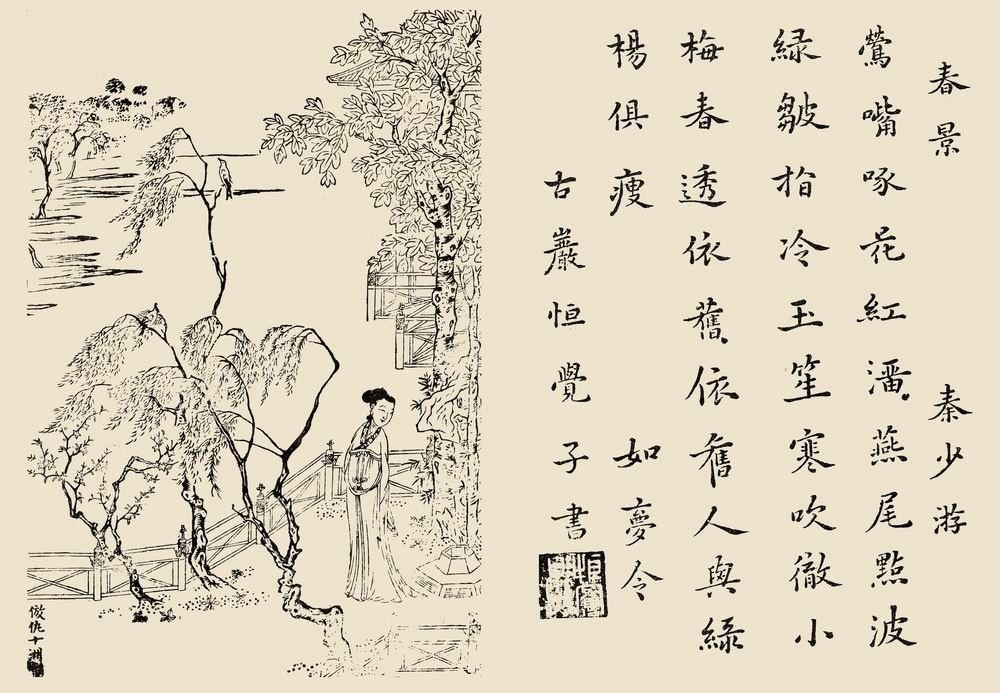 春景 秦少游
鶯嘴啄花紅溜燕尾點波
綠皺指冷玉笙寒吹徹小
梅春透依舊依舊人與綠
楊俱瘦 如夢令
古巖恒覺子書
倣仇十洲